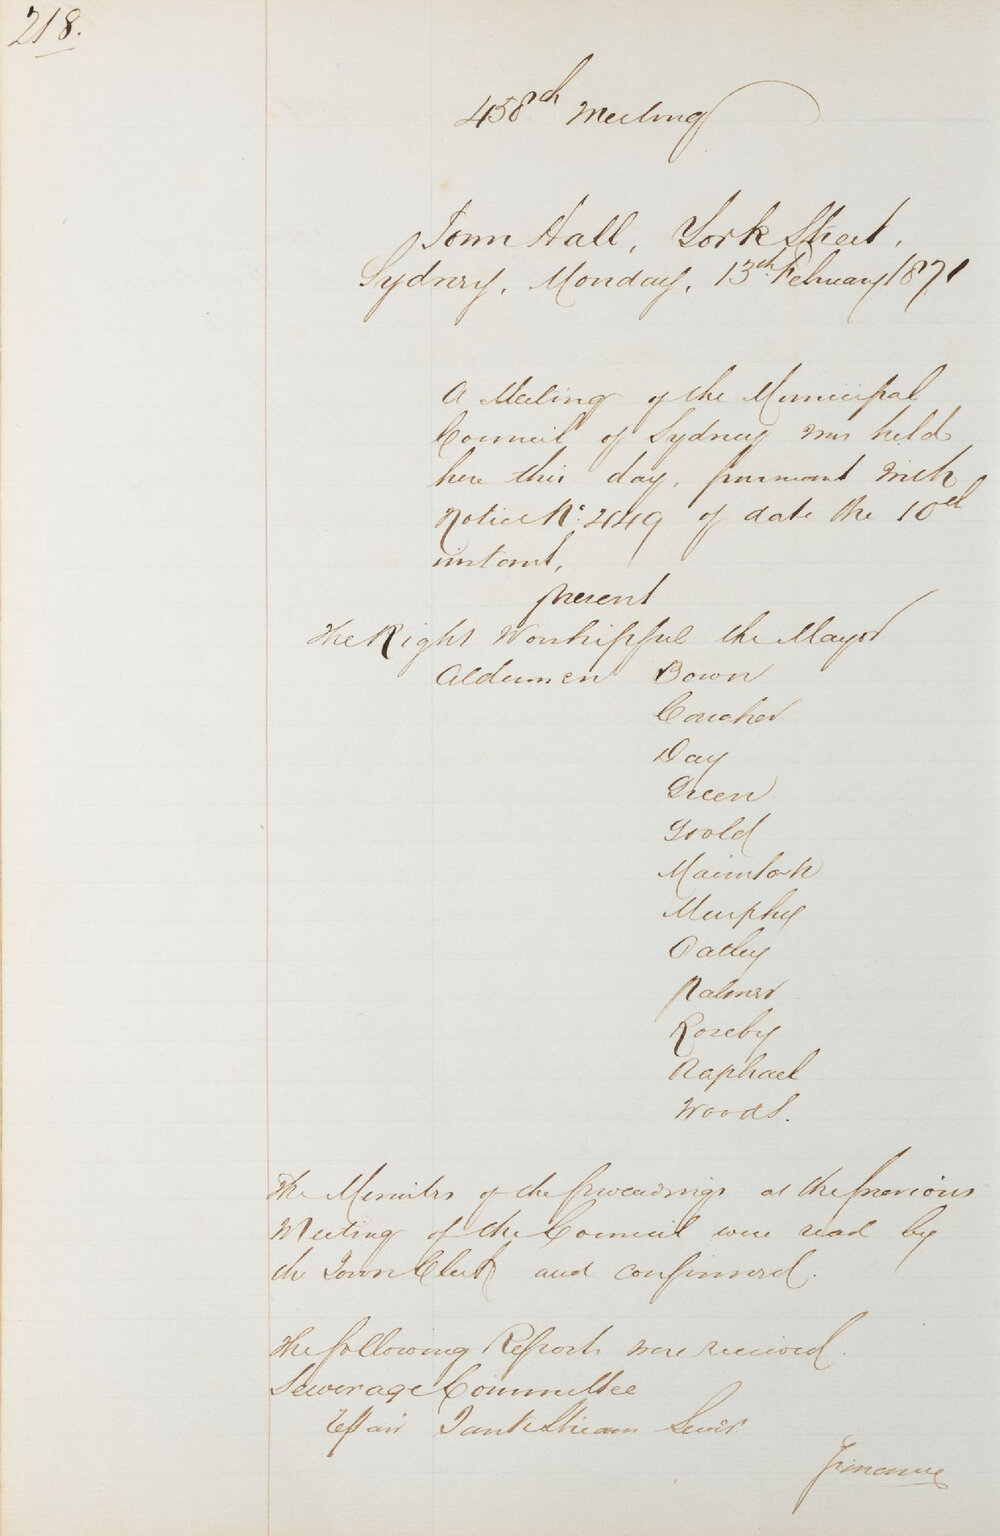 218.
458th Meeting
Town Hall, York Street,
Sydney, Monday, 13th February 1871
A Meeting of the Municipal
Council of Sydney was held
here this day, pursuant with
Notice No. 2449 of date the 10th
instant,
present
The Right Worshipful the Mayor
Aldermen Bown
Caraher
Day
Green
Goold
Macintosh
Murphy
Oatley
Palmer
Roseby
Raphael
Woods.
The Minutes of the proceedings at the previous
Meeting of the Council were read by
the Town Clerk and confirmed.
The following Reports were received.
Sewerage Committee
Repair Tank Stream Sewer
Finance